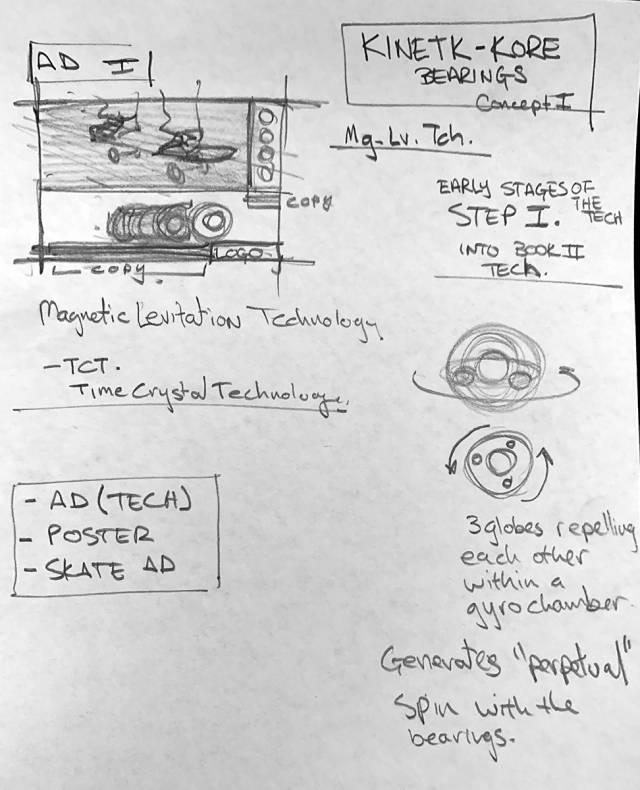 AD I
KINETK-KORE
BEARINGS
Concept I
Mg-Lv. Tch.
COPY
EARLY STAGES OF
THE
STEP I. TECH
INTO BOOK II
TECH.
LOGO
COPY
Magnetic Levitation Technology
- TCT.
Time Crystal Technology.
- AD (TECH)
- POSTER
- SKATE AD
3 globes repelling
each other
within a
gyro chamber.
Generates "perpetual"
spin with the
bearings.